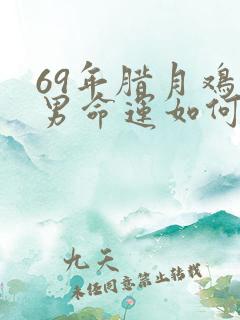 69年腊月鸡
男命运如何
九天
未经同意禁止转载